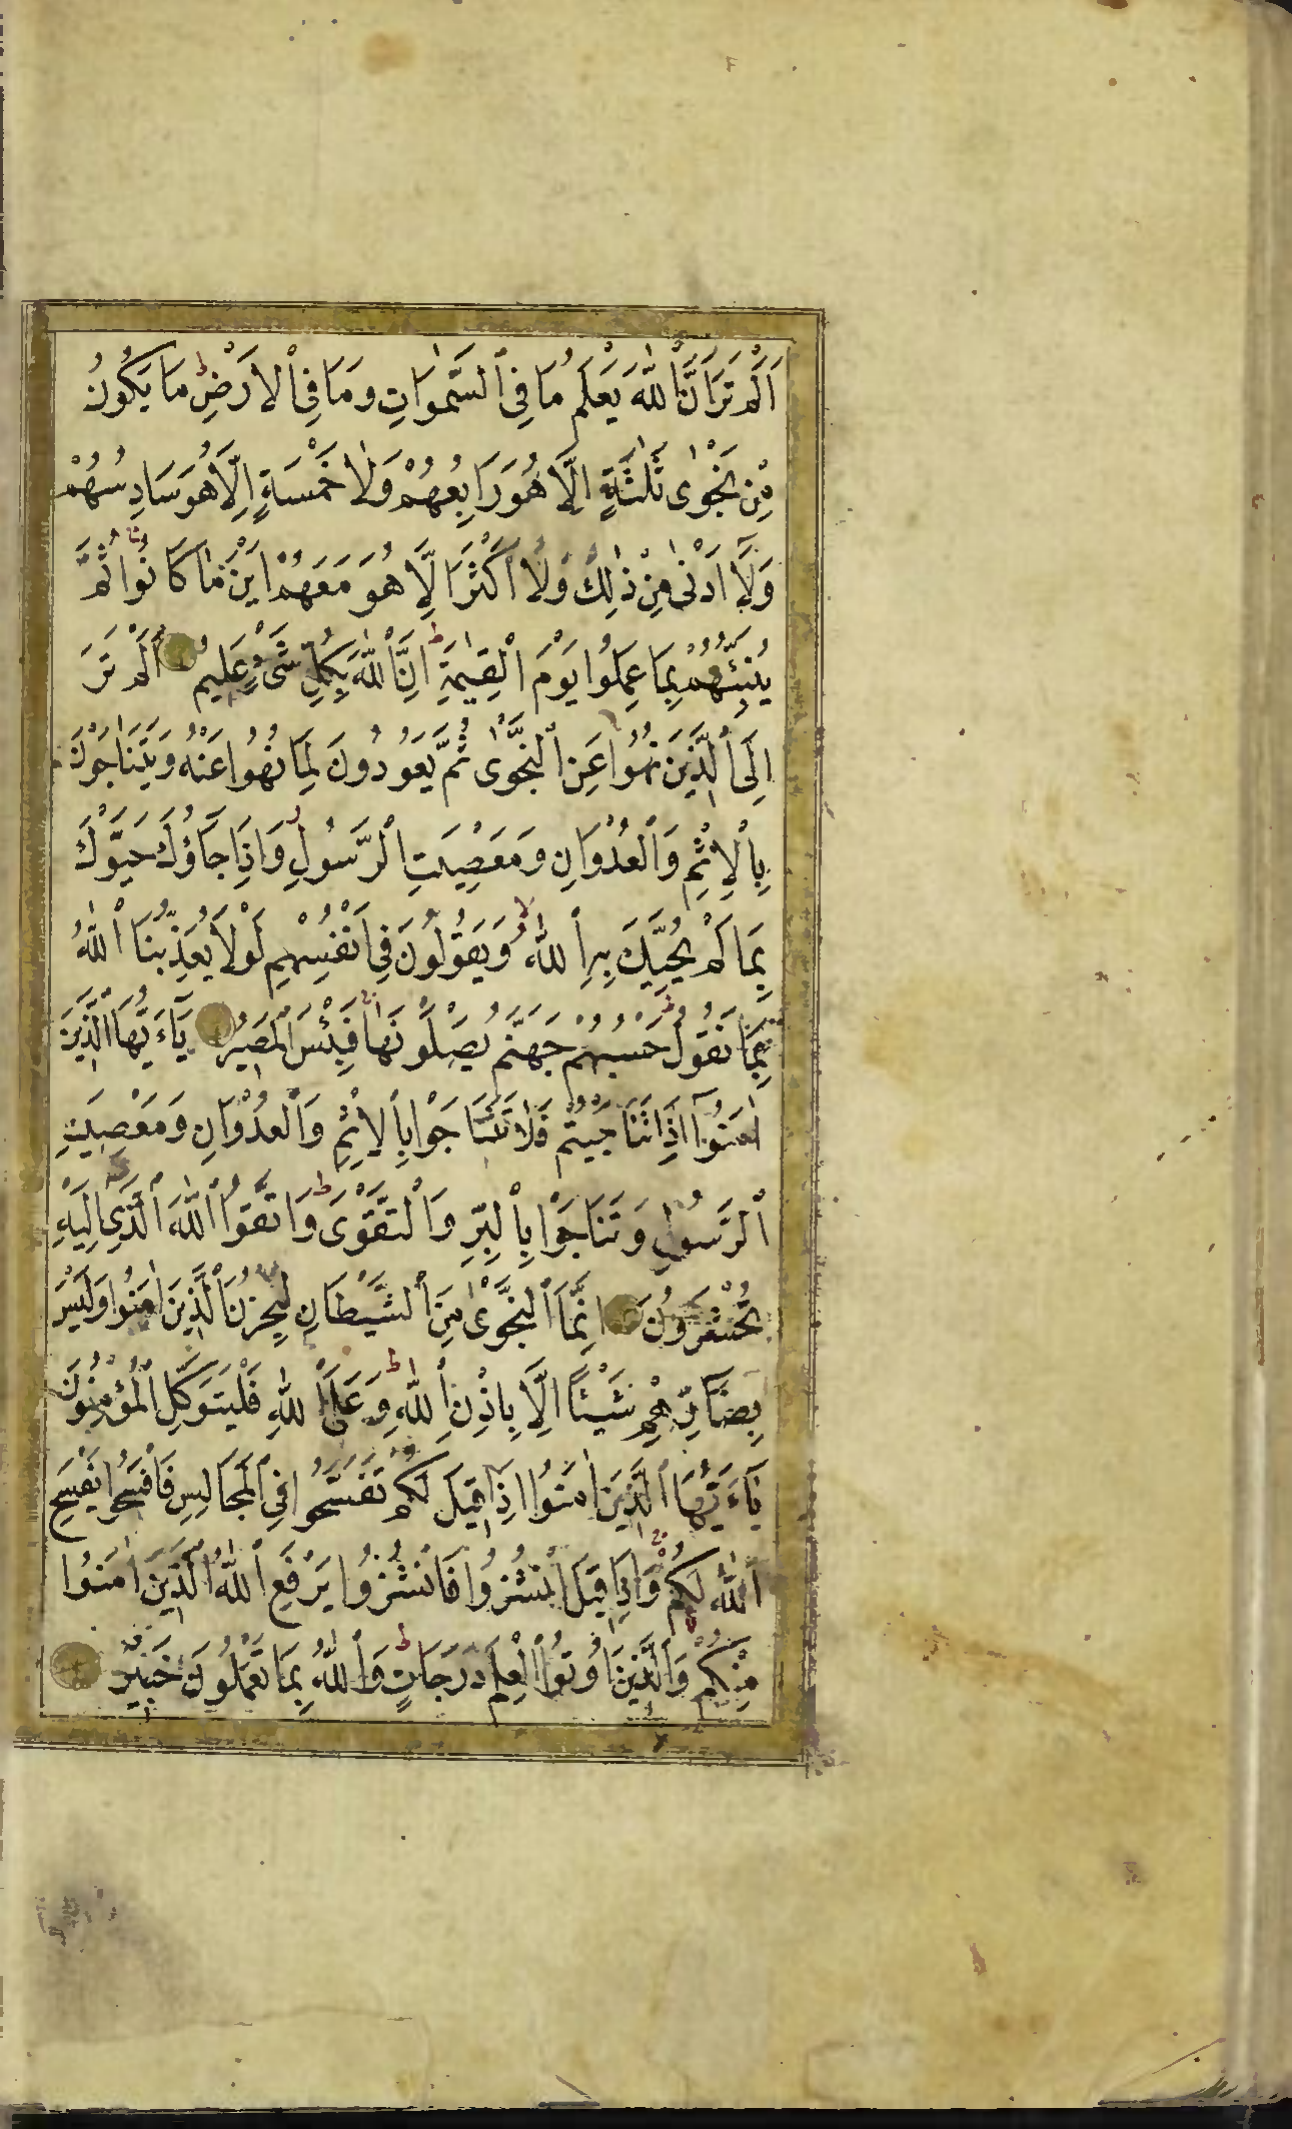 اَلَمْ تَرَ اَنَّ ٱللّٰهَ يَعْلَمُ مَا فِى ٱلسَّمٰوَاتِ وَمَا فِى ٱلْاَرْضِ ط مَا يَكُونُ
مِنْ نَجْوٰى ثَلٰثَةٍ اِلَّا هُوَ رَابِعُهُمْ وَلَا خَمْسَةٍ اِلَّا هُوَ سَادِسُهُمْ
وَلَآ اَدْنٰى مِنْ ذٰلِكَ وَلَآ اَكْثَرَ اِلَّا هُوَ مَعَهُمْ اَيْنَ مَا كَانُوا ثُمَّ
يُنَبِّئُهُمْ بِمَا عَمِلُوا يَوْمَ الْقِيٰمَةِ ط اِنَّ ٱللّٰهَ بِكُلِّ شَىْءٍ عَلِيمٌ اَلَمْ تَرَ
اِلَى ٱلَّذِينَ نُهُوا عَنِ ٱلنَّجْوٰى ثُمَّ يَعُودُونَ لِمَا نُهُوا عَنْهُ وَيَتَنَاجَوْنَ
بِٱلْاِثْمِ وَٱلْعُدْوَانِ وَمَعْصِيَتِ ٱلرَّسُولِ وَاِذَا جَآؤُكَ حَيَّوْكَ
بِمَا لَمْ يُحَيِّكَ بِهِ ٱللّٰهُ لا وَيَقُولُونَ فِى اَنْفُسِهِمْ لَوْلَا يُعَذِّبُنَا ٱللّٰهُ
بِمَا نَقُولُ ط حَسْبُهُمْ جَهَنَّمُ يَصْلَوْنَهَا فَبِئْسَ ٱلْمَصِيرُ يَآءَيُّهَا ٱلَّذِينَ
اٰمَنُوٓا اِذَا تَنَاجَيْتُمْ فَلَا تَتَنَاجَوْا بِٱلْاِثْمِ وَٱلْعُدْوَانِ وَمَعْصِيَتِ
ٱلرَّسُولِ وَتَنَاجَوْا بِٱلْبِرِّ وَٱلتَّقْوٰى ط وَاتَّقُوا ٱللّٰهَ ٱلَّذِى اِلَيْهِ
تُحْشَرُونَ اِنَّمَا ٱلنَّجْوٰى مِنَ ٱلشَّيْطَانِ لِيَحْزُنَ ٱلَّذِينَ اٰمَنُوا وَلَيْسَ
بِضَآرِّهِمْ شَيْئًا اِلَّا بِاِذْنِ ٱللّٰهِ ط وَعَلَى ٱللّٰهِ فَلْيَتَوَكَّلِ ٱلْمُؤْمِنُونَ
يَآءَيُّهَا ٱلَّذِينَ اٰمَنُوا اِذَا قِيلَ لَكُمْ تَفَسَّحُوا فِى ٱلْمَجَالِسِ فَافْسَحُوا يَفْسَحِ
ٱللّٰهُ لَكُمْ وَاِذَا قِيلَ ٱنْشُزُوا فَانْشُزُوا يَرْفَعِ ٱللّٰهُ ٱلَّذِينَ اٰمَنُوا
مِنْكُمْ وَٱلَّذِينَ اُوتُوا ٱلْعِلْمَ دَرَجَاتٍ ط وَٱللّٰهُ بِمَا تَعْمَلُونَ خَبِيرٌ